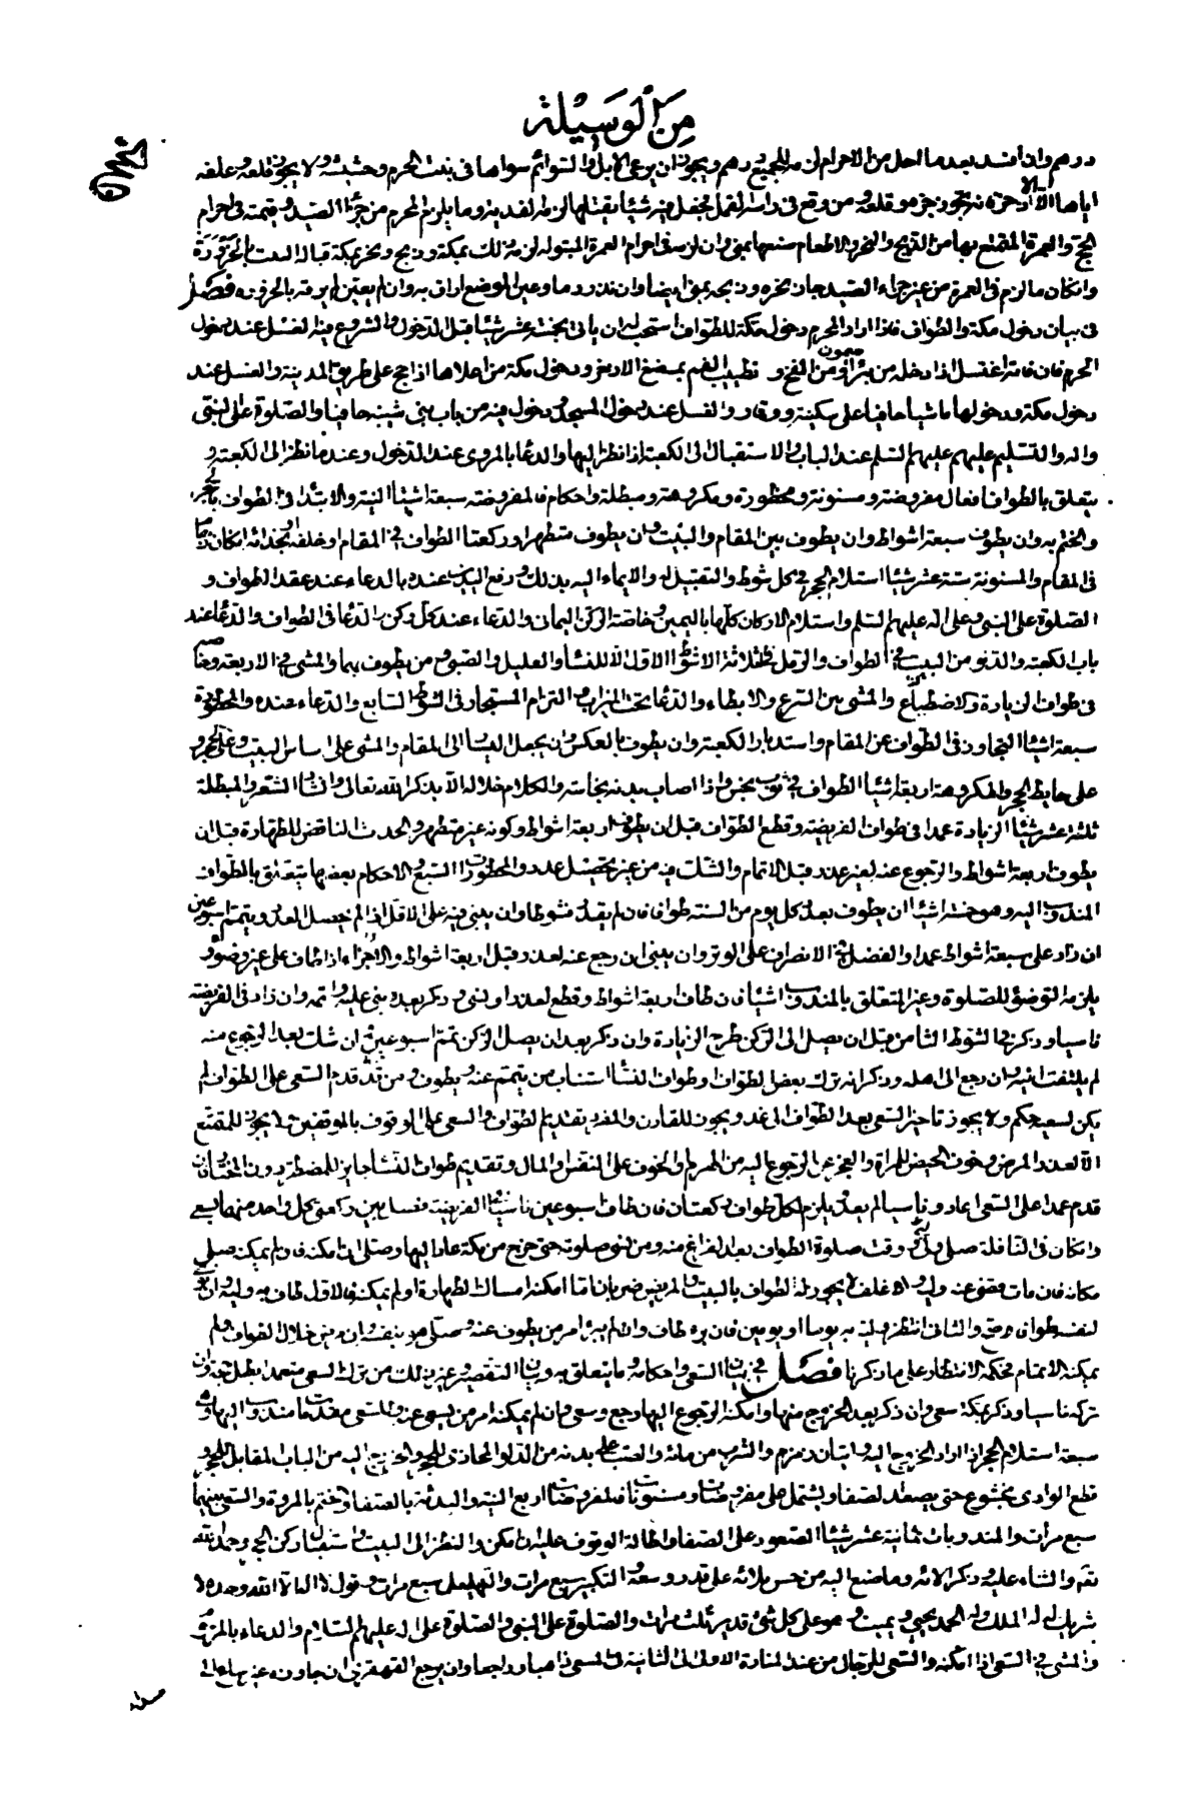 من الوسيلة
درهم وان افسد بعد ما احل من الاحرام لزمه للجميع درهم ويجوز ان يرعى الابل والسوائم سواها فى نبت الحرم وحشيشه ولا يجوز قلعه وعلفه
اياها الا الاذخر فانه يجوز جزه وقلعه ومن وقع فى راسه القمل فجعل فيه شيئا يقتلها لزمه الفدية وما يلزم المحرم من جزاء الصيد وقيمته فى احرام
الحج والعمرة المتمتع بها من الذبح والنحر والاطعام صنعها بمنى وان لزمه فى احرام العمرة المبتولة لزمه ذلك بمكة وذبح ونحر بمكة قبالة البيت بالحزورة
وان كان ما لزم فى العمرة من غير جزاء الصيد جاز نحره وذبحه بمنى ايضا وان نذر دما وعين الموضع اراق به وان لم يعين لم يرقه بالحزورة فصل
فى بيان دخول مكة والطواف فاذا اراد المحرم دخول مكة للطواف استحب له ان ياتى بخمسة عشر شيئا قبل الدخول والشروع فيه الغسل عند دخول
الحرم فان فاته اغتسل اذا دخله من بئر ميمون او من الفخ وتطييب الفم بمضغ الاذخر ودخول مكة من اعلاها اذا حج على طريق المدينة والغسل عند
دخول مكة ودخولها ماشيا حافيا على سكينة ووقار والغسل عند دخول المسجد ودخوله فيه من باب بنى شيبة حافيا والصلوة على النبى
واله والتسليم عليهم عليهم السلم عند الباب والاستقبال الى الكعبة اذا نظر اليها والدعا بالمروى عند الدخول وعند ما نظر الى الكعبة و
يتعلق بالطواف افعال مفروضة ومسنونة ومحظورة ومكروهة ومبطلة واحكام فالمفروضة سبعة اشياء النية والابتداء فى الطواف بالحجر
والختم به وان يطوف سبعة اشواط وان يطوف بين المقام والبيت وان يطوف متطهرا وركعتا الطواف فى المقام او خلفه او بحذائه ان كان زحام
فى المقام والمسنونة ستة عشر شيئا استلام الحجر فى كل شوط والتقبيل له والايماء اليه بدلك ورفع اليدين عنده بالدعاء عند عقد الطواف و
الصلوة على النبى وعلى اله عليهم السلم واستلام الاركان كلها باليمين وخاصة الركن اليمانى والدعاء عند كل ركن والدعا فى الطواف والدعاء عند
باب الكعبة والدنو من البيت فى الطواف والرمل فى ثلاثة الاشواط الاول الا للنساء والعليل والصبى ومن يطوف بهما والمشى فى الاربعة وخاصة
فى طواف الزيارة والاضطباع والمشى بين السرع والابطاء والدعا تحت الميزاب والتزام المستجار فى الشوط السابع والدعاء عنده والمحظورة
سبعة اشياء التجاوز فى الطواف عن المقام واستدبار الكعبة وان يطوف بالعكس وان يجعل اليسار الى المقام والمشى على اساس البيت وعلى الحجر و
على حايط الحجر والمكروهة اربعة اشياء الطواف فى ثوب نجس واذا اصاب بدنه نجاسة والكلام خلاله الا بذكر الله تعالى وانشاء الشعر والمبطلة
ثلثة عشر شيئا الزيادة عمدا فى طواف الفريضة وقطع الطواف قبل ان يطوف اربعة اشواط وكونه غير متطهر والحدث الناقض للطهارة قبل ان
يطوف اربعة اشواط والرجوع عنه لغير عذر قبل الاتمام والشك فيه من غير تحصيل عدد والمحظورات السبع والاحكام بعضها يتعلق بالطواف
المندوب اليه وهو خمسة اشياء ان يطوف بعد كل يوم من السنة طواف فان لم يقدر فشوطا وان يبنى فيه على الاقل اذا لم يحصل العدد ويتمم اسبوعين
ان زاد على سبعة اشواط عمدا والفضل فى الانصراف على الوتر وان يبنى ان رجع عنه لعذر وقبل اربعة اشواط والاجزاء اذا طاف على غير وضوء و
يلزمه التوضؤ للصلوة وغير المتعلق بالمندوب اشياء فان طاف اربعة اشواط وقطع لعذر او نسى وذكر بعده بنى عليه واتمه وان زاد فى الفريضة
ناسيا وذكر فى الشوط الثامن قبل ان يصل الى الركن طرح الزيادة وان ذكر بعد ان يصل الركن تمم اسبوعين وان شك بعد الرجوع منه
لم يلتفت اليه وان رجع الى اهله وذكر انه ترك بعض الطواف او طواف النساء استناب من يتمم عنه ويطوف ومن قدم السعى على الطواف لم
يكن لسعيه حكم ولا يجوز تاخير السعى بعد الطواف الى غد ويجوز للقارن والمفرد تقديم الطواف والسعى على الوقوف بالموقفين ولا يجوز للمتمتع
الا لعذر المرض وخوف الحيض للمراة والعجز عن الرجوع اليه من الهرم والخوف على النفس والمال وتقديم طواف النساء جايز للمضطر دون المختار فان
قدم عمدا على السعى اعاد وناسيا لم يعد ويلزم لكل طواف ركعتان فان طاف اسبوعين ناسيا فى الفريضة فصل بين ركعتى كل واحد منهما بسعى
وان كان فى النافلة صلى فى اى وقت صلوة الطواف بعد الفراغ منه ومن نسى صلوته حتى خرج من مكة عاد اليها وصلى ان امكنه فان لم يمكنه صلى
مكانه فان مات قضى عنه وليه والاغلف لا يجوز له الطواف بالبيت والمريض ضربان اما امكنه امساك الطهارة او لم يمكنه فالاول طاف به وليه او
لنفسه طواف والثانى انتظر وليه به يوما او يومين فان برء طاف والا امر من يطوف عنه وصلى هو بنفسه وان مرض خلال الطواف ولم
يمكنه الاتمام فحكمه الانتظار على ما ذكرنا فصل فى بيان السعى واحكامه وما يتعلق به وبيان التقصير وغير ذلك من ترك السعى متعمدا بطل حجه وان
تركه ناسيا وذكر بمكة سعى وان ذكر بعد الخروج منها وامكنه الرجوع اليها رجع وسعى وان لم يمكنه امر من يسعى عنه وللسعى مقدمات مندوب اليها وهى
سبعة استلام الحجر اذا اراد الخروج اليه واتيان زمزم والشرب من مائه والصب على بدنه من الدلو المحاذى للحجر والخروج اليه من الباب المقابل للحجر و
قطع الوادى بخشوع حتى يصعد الصفا ويشتمل على مفروضات ومسنونات فالمفروضات اربع النية والبداءة بالصفا والختم بالمروة والسعى بينهما
سبع مرات والمندوبات ثمانية عشر شيئا الصعود على الصفا واطالة الوقوف عليه ان امكن والنظر الى البيت واستقبال ركن الحجر وحمد الله
تعالى والثناء عليه وذكر الائه وما صنع اليه من حسن بلائه على قدر وسعه والتكبير سبع مرات والتهليل سبع مرات وقول لا اله الا الله وحده لا
شريك له له الملك وله الحمد يحيى ويميت وهو على كل شئ قدير ثلث مرات والصلوة على النبى والصلوة على اله عليهم السلام والدعاء بالمروى
والمشى فى السعى اذا امكنه والسعى للرجال من عند المنارة الاولى الى الثانية فى المسعى ذاهبا وراجعا وان يرجع القهقرى ان جاوزه غير ساع الى